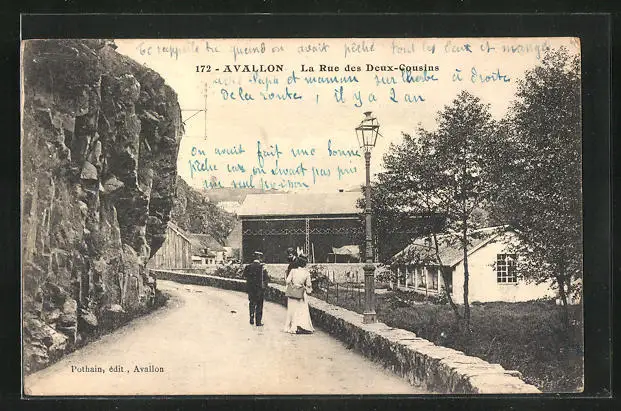 te rappelle tu quand on avait pêché tout les deux et mangé
172 - AVALLON . La Rue des Deux-Cousins
avec Papa et maman sur l'herbe à droite
de la route , il y a 2 an
on avait fait une bonne
pêche car on avait pas pris
un seul poisson
Pothain, édit., Avallon